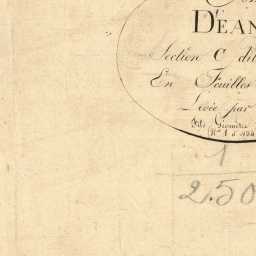 D'EAN
Section C dit
En Feuilles
Levée par
Géomètre
N° 1 à
1
2.50